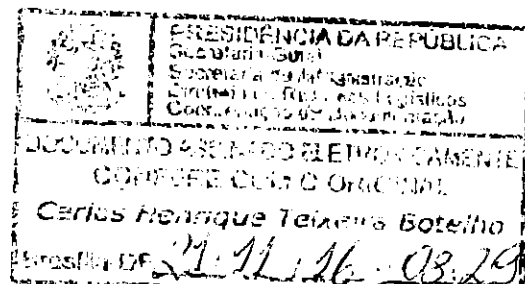 PRESIDÊNCIA DA REPÚBLICA
Secretaria-Geral
Secretaria de Administração
Diretoria de Recursos Logísticos
Coordenação de Documentação
DOCUMENTO ASSINADO ELETRONICAMENTE
CONFERE COM O ORIGINAL
Carlos Henrique Teixeira Botelho
Brasília-DF 21.11.16 - 08:29